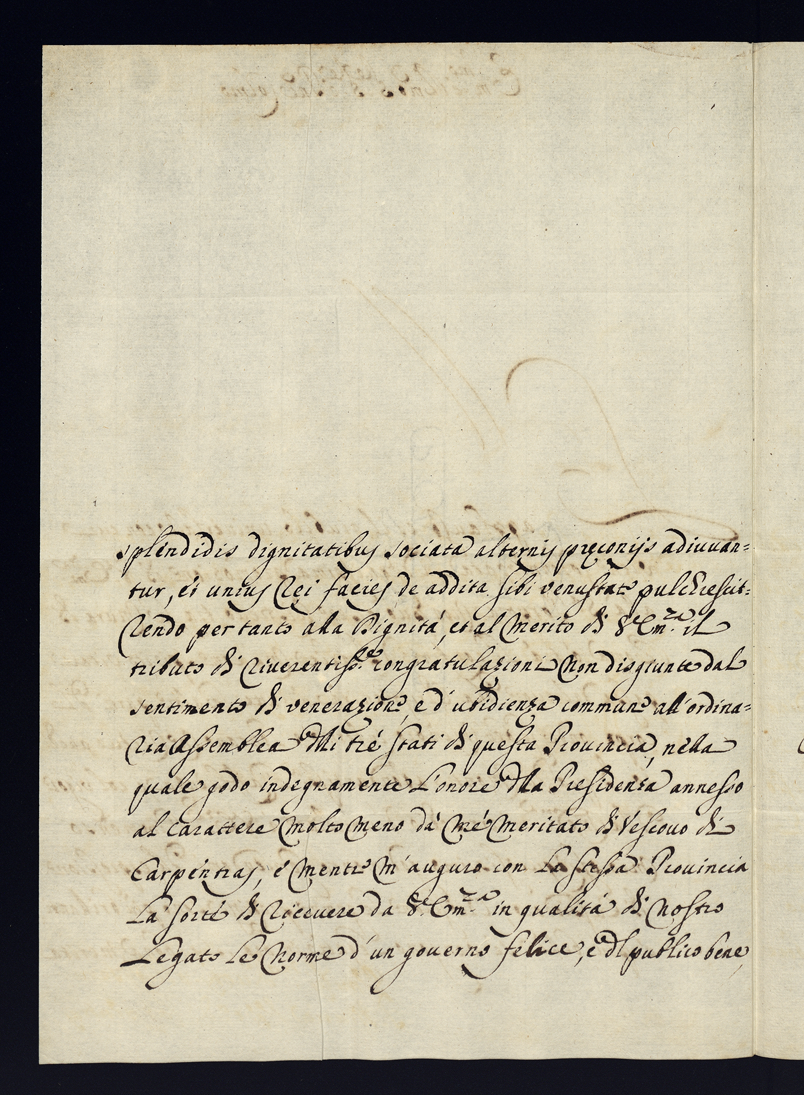 splendidis dignitatibus sociata alternis pręconijs adiuuan=
tur, et unius Rei facies de addita sibi venustate pulchrescit:
Rendo per tanto alla Dignitá, et al Merito di V.ª Em.ᶻᵃ il
tributo di riuerentiss.ᵉ congratulazioni Non disgiunte dal
sentimento di venerazione e d'ubidienza commune all'ordina=
ria Assemblea delli tré stati di questa Prouincia, nella
quale godo indegnamente l'onore della Presidenza annesso
al Carattere Molto Meno dá Mé Meritato di Vescouo di
Carpentras, é Mentre m'auguro con la stessa Prouincia
La sorté di Riceuere da V.ª Em.ᶻᵃ in qualitá di Nostro
Legato Le Norme d'un gouerno felice, e del publico bene,